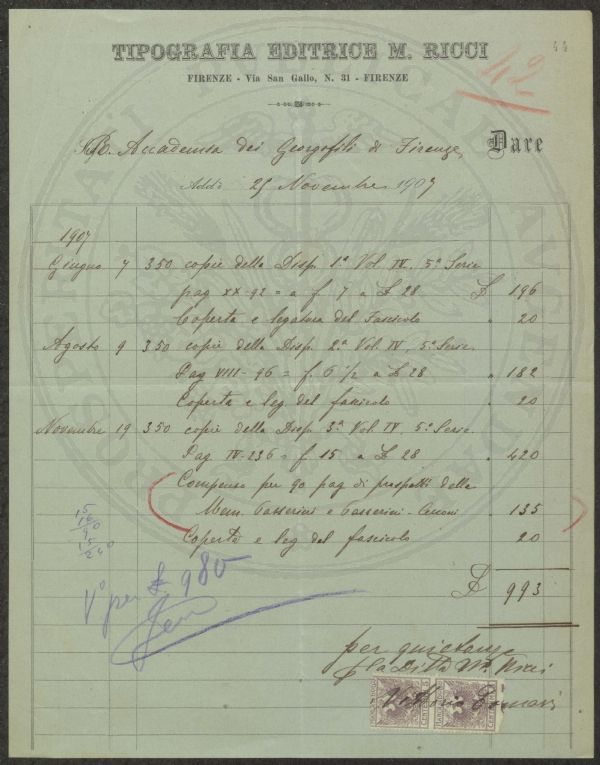 44
42
TIPOGRAFIA EDITRICE M. RICCI
FIRENZE - Via San Gallo, N. 31 - FIRENZE
R. Accademia dei Georgofili di Firenze Dare
Addì 25 Novembre 1907
1907
Giugno 7 350 copie della Disp. 1ª Vol. IV. 5ª Serie
pag XX-92 = a f. 7 a £ 28 £ 196
Coperta e legatura del Fascicolo " 20
Agosto 9 350 copie della Disp. 2ª Vol. IV, 5ª Serie
Pag VIII-96 = f. 6 1/2 a £ 28 " 182
Coperta e leg del fascicolo " 20
Novembre 19 350 copie della Disp. 3ª Vol IV 5ª Serie
Pag IV-236 = f 15 a £ 28 " 420
Compenso per 90 pag di prospetti della
Mem. Passerini e Passerini-Cecconi " 135
Coperta e leg del fascicolo " 20
£ 993
Vº per £ 980
per quietanza
p la Ditta M. Ricci
Vittorio